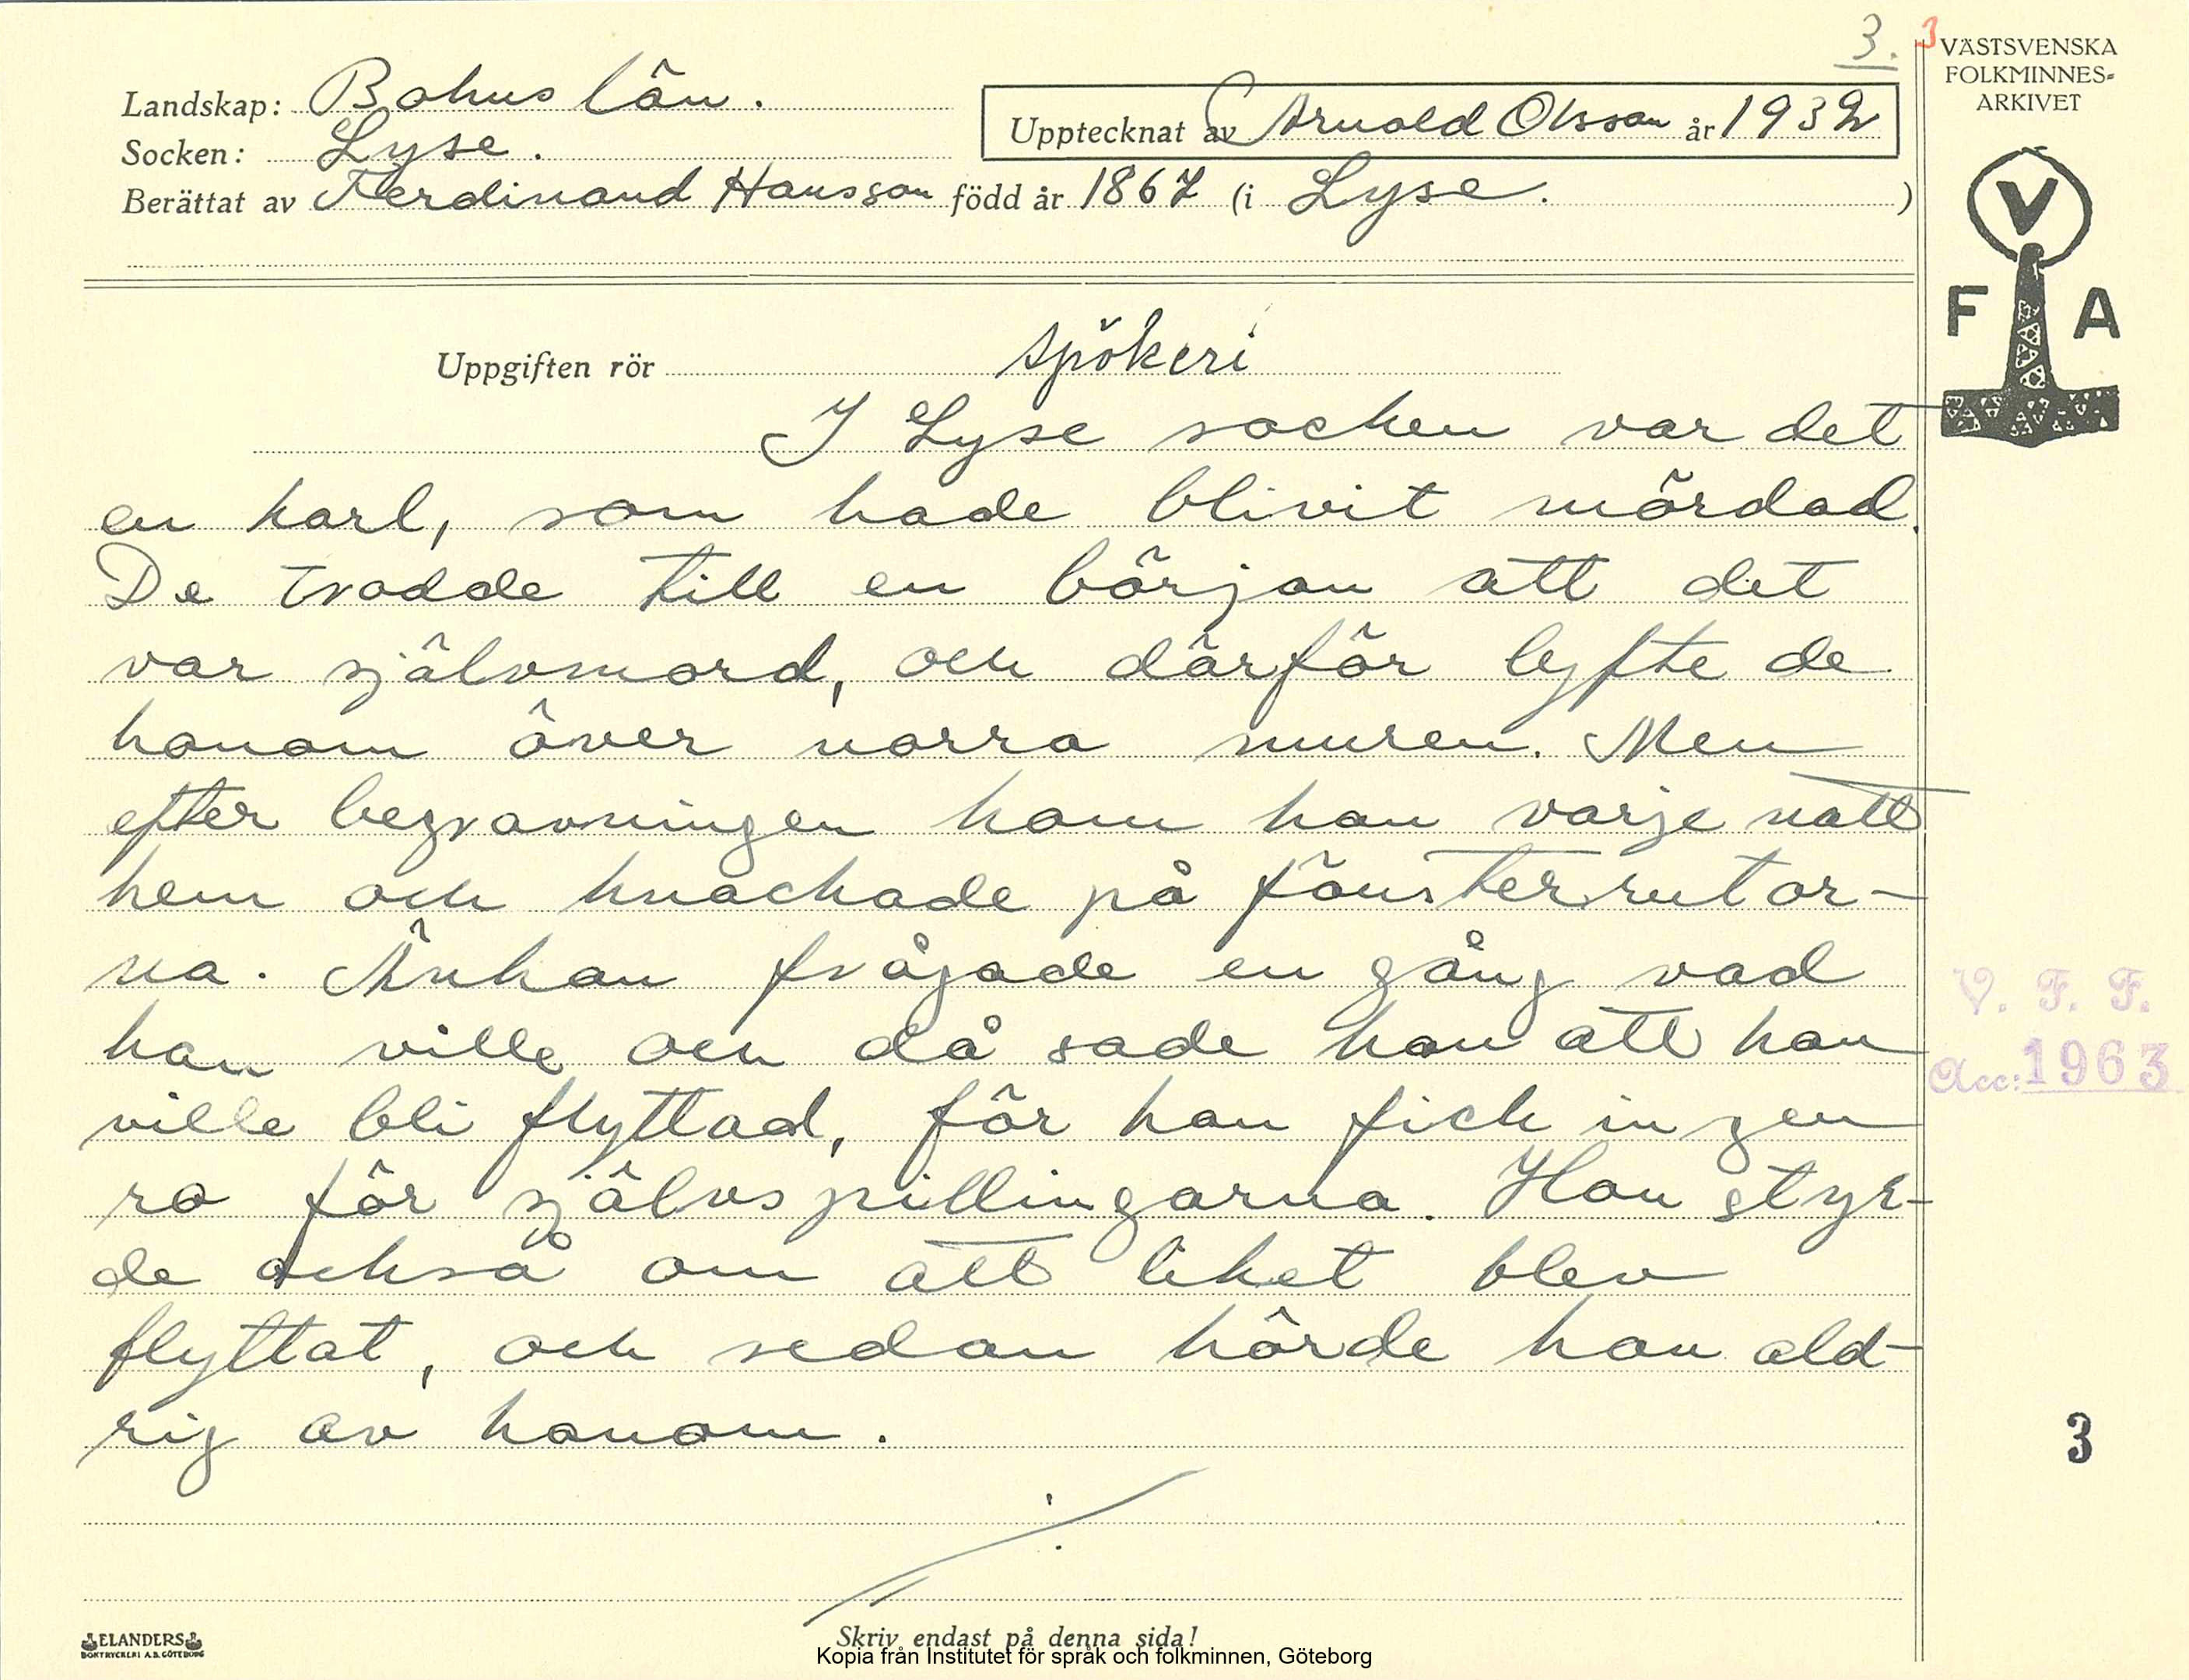 3. 3
VÄSTSVENSKA
FOLKMINNES-
ARKIVET
Landskap: Bohuslän.
Upptecknat av Arnold Olsson år 1932
Socken: Lyse.
Berättat av Ferdinand Hansson född år 1867 (i Lyse. )
V
F A
Uppgiften rör spökeri
I Lyse socken var det
en karl, som hade blivit mördad.
De trodde till en början att det
var självmord, och därför lyfte de
honom över norra muren. Men
efter begravningen kom han varje natt
hem och knackade på fönsterrutor-
na. Änkan frågade en gång vad
han ville och då sade han att han
ville bli flyttad, för han fick ingen
ro för självspillingarna. Hon styr-
de också om att liket blev
flyttat, och sedan hörde hon ald-
rig av honom.
V. F. F.
Acc: 1963
3
ELANDERS
BOKTRYCKERI A.B. GÖTEBORG
Skriv endast på denna sida!
Kopia från Institutet för språk och folkminnen, Göteborg